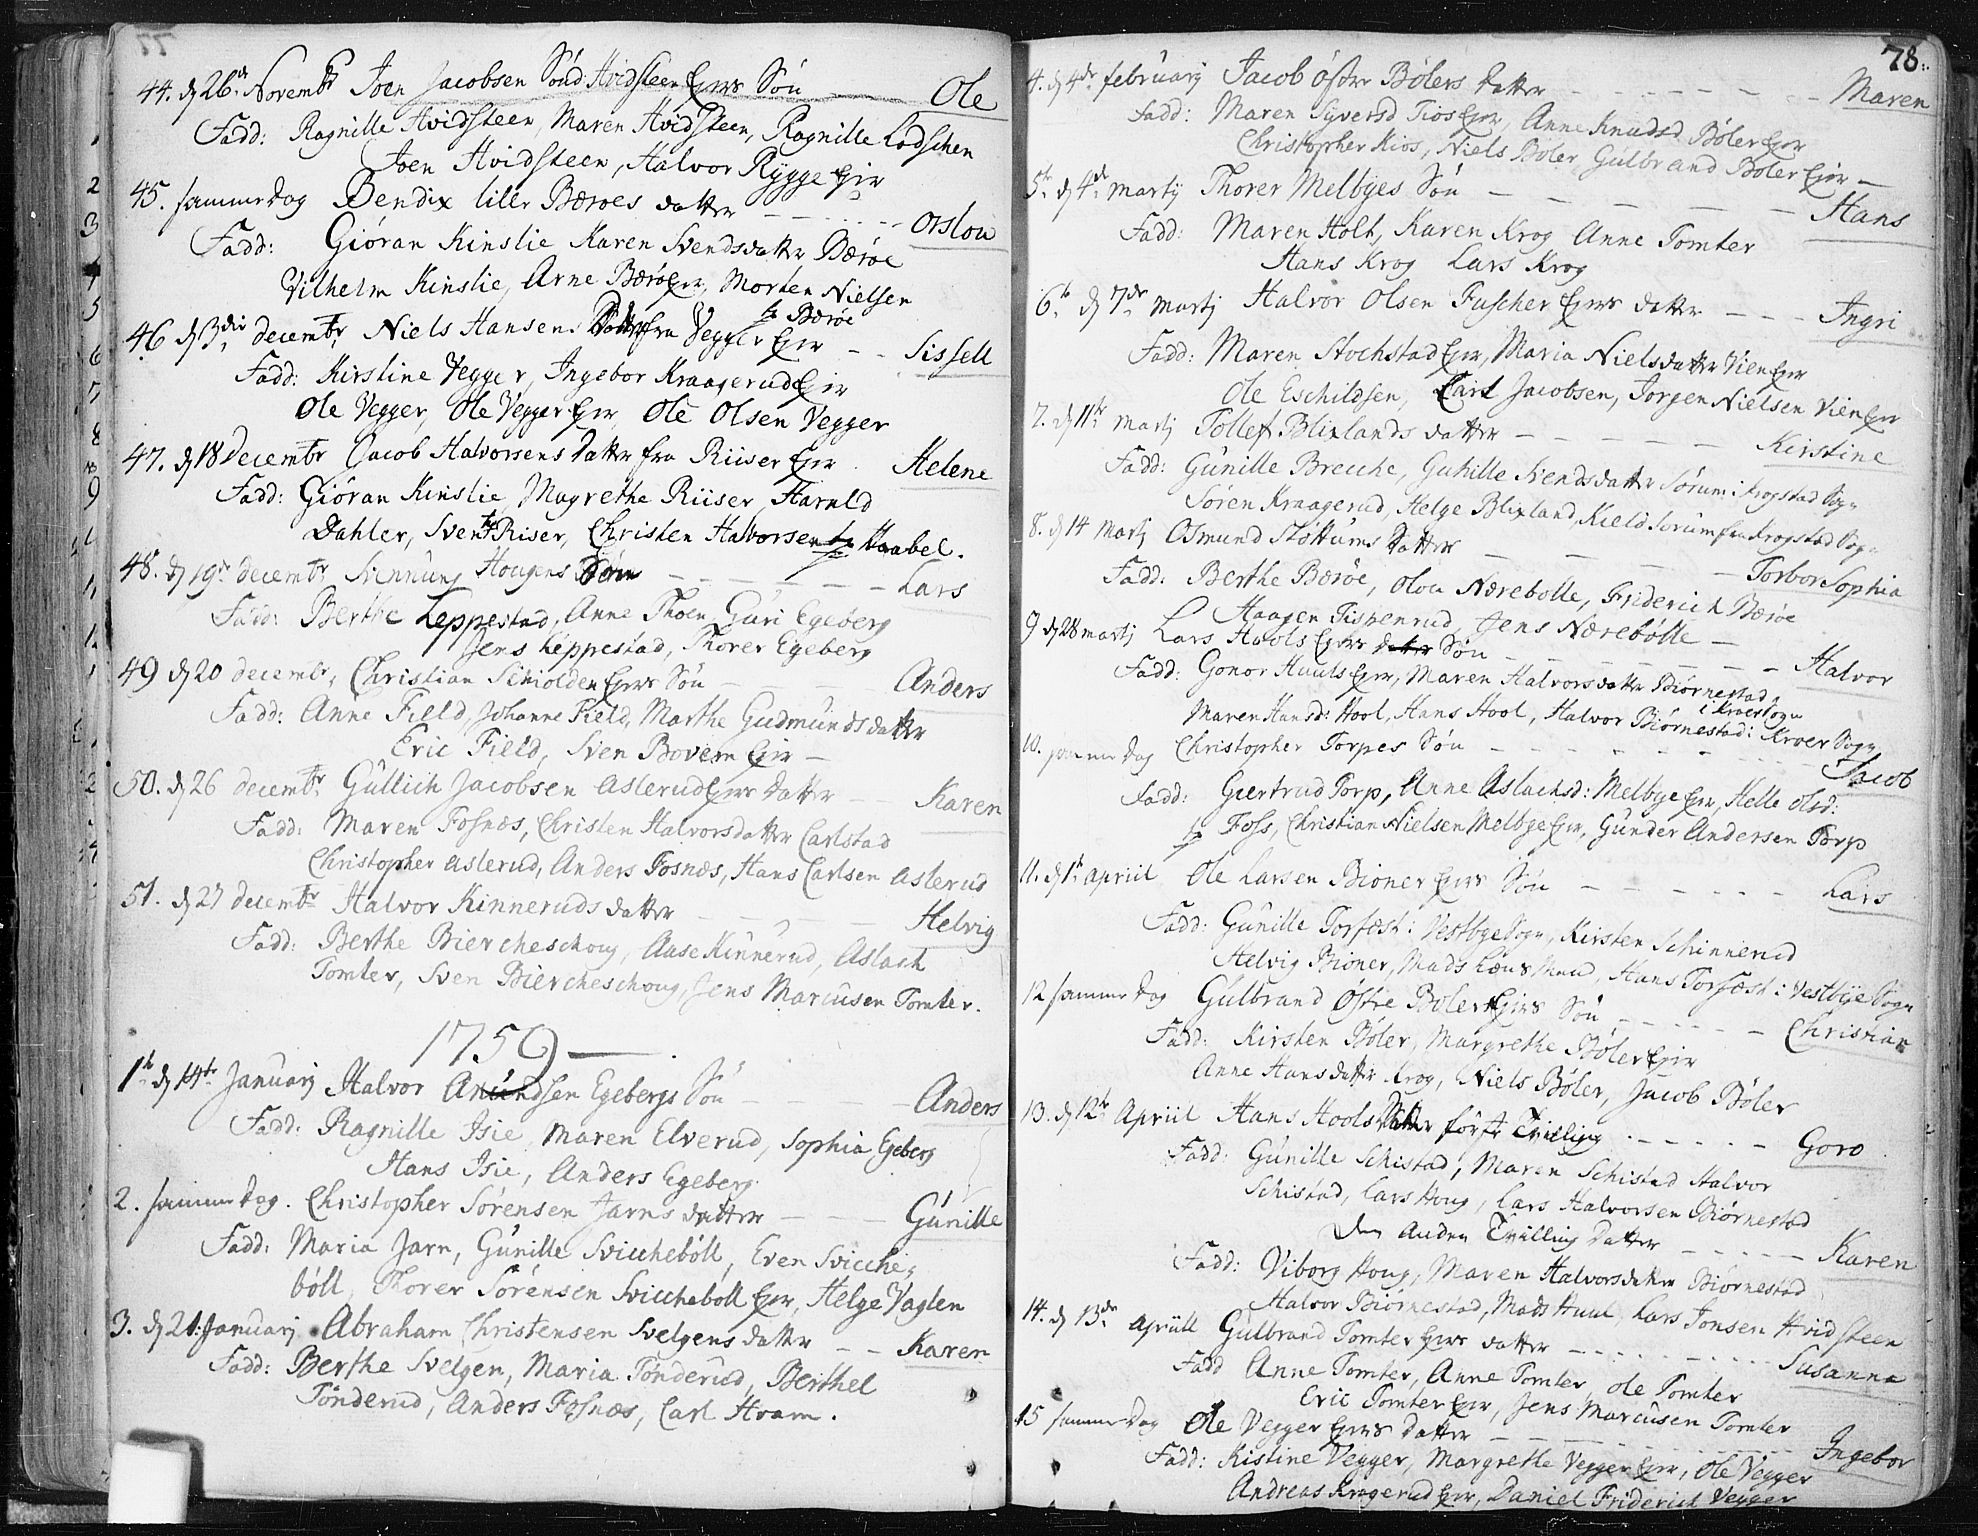 77
44. d 26de Novembr Joen Jacobsen Sønd: Hvidsteen Ejers Søn — Ole
Fadd: Ragnille Hvidsteen, Maren Hvidsteen, Ragnille Lodschen
Joen Hvidsteen, Halvor Rygge Ejer
45. samme Dag Bendix lille Bærøes datter — Orslou
Fadd: Giøran Kinslie Karen Svendsdatter Bærøe
Vilhelm Kinslie, Arne BærøeEjer, Morten Nielsen
fr Bærøe
46 d 3die decembr Niels Hansens Datter fra Vegger Ejer — Sissell
Fadd: Kirstine Vegger, Ingebor Kraagerud Ejer
Ole Vegger, Ole Vegger Ejer, Ole Olsen Vegger
47. d 18 Decembr Jacob Halvorsens Datter fra Riiser Ejer. Helene
Fadd: Giøran Kinslie, Magrethe Riiser, Harald
Dahler, Svent Riser, Christen Halvorsen fr Haabel.
48. d 19de decembr Svennung Hougens Søn — Lars
Fadd: Berthe Leppestad, Anne Thoen, Guri Egeberg
Jens Leppestad, Thorer Egeberg
49 d 20 decembr, Christian Schiolden Ejers Søn — Anders
Fadd: Anne Field, Johanne Field, Marthe Gudmundsdatter
Eric Field, Sven Bovem Ejer —
50. d 26 decembr Gullich Jacobsen Aslerud Ejers Datter — Karen
Fadd: Maren Fosnæs, Christen Halvorsdatter Carlstad
Christopher Aslerud, Anders Fosnæs, Hans Carlsen Aslerud
51. d 27 decembr Halvor Kinneruds datter — Helvig
Fadd: Berthe Biercheschoug, Aase Kinnerud, Aslach
Tomter, Sven Biercheschoug, Jens Marcusen Tomter.
1759 —
1te d 14te Januarj Halvor Amundsen Egebergs Søn — Anders
Fadd: Ragnille Isie, Maren Elverud, Sophia Egeberg
Hans Isie, Anders Egeberg.
2. samme Dag. Christopher Sørensen Jarns datter — Gunille
Fadd: Maria Jarn, Gunille Svicchebøll, Even Svicche-
bøll, Thorer Sørensen Svicchebøll Ejer, Helge Vaglen
3. d 21: Januarj Abraham Christensen Svelgens datter — Karen
Fadd: Berthe Svelgen, Maria Tønderud, Berthel
Tønderud, Anders Fosnæs, Carl Hvam.
78.
4. d 4de februarij Jacob Østre Bølers datter — Maren
Fadd: Maren Syversd Tios Ejer, Anne Knudsd Bøler Ejer
Christopher Kios, Niels Bøler, Gulbrand Bøler Ejer —
5te d 4de Martj Thorer Melbyes Søn — Hans
Fadd: Maren Holt, Karen Krog Anne Tomter
Hans Krog Lars Krog
6te d 7de Martj Halvor Olsen Fuscher Ejers datter — Ingri
Fadd: Maren Stochstad Ejer, Maria Nielsdatter Vien Ejer
Ole Eschildsen, Carl Jacobsen, Jørgen Nielsen Vien Ejer
7. d 11te Martj Tollef Blixlands datter — Kirstine
Fadd: Gunille Brecche, Gunille Svendsdatter Sørum i Krogstad Sogn
Søren Kraagerud, Helge Blixland, Kield Sørum fra Krogstad Sogn
8. d 14 Martj Osmund Støttums Datter — Torbor Sophia
Fadd: Berthe Bærøe, Olou Nærebølle, Friderich Bærøe
Haagen Tispenrud, Jens Nærebølle —
9 d 28 martj Lars Huols Ejers Søn — Halvor
Fadd: Gonor Huuls Ejer, Maren Halvorsdatter Biørnestad
i Kroer Sogn
Maren Hansd: Hool, Hans Hool, Halvor Biørnestad i Kroer Sogn
10. samme Dag Christopher Torpes Søn — Jacob
Fadd: Giertrud Torp, Anne Aslachsd: Melbye Ejer, Helle Olsd:
fr Foss, Christian Nielsen Melbye Ejer, Gunder Andersen Torp
11. d 1te Apriil Ole Larsen Bioner Ejers Søn — Lars
Fadd: Gunille Torfæst i Vestbye Sogn, Kirsten Schinnerud
Helvig Bioner, Mads Muul, Hans Torfæst i Vestbye Sogn
12 samme Dag Gulbrand Østre Bøler Ejers Søn — Christian
Fadd: Kirsten Bøler, Margrethe Bøler Ejer
Anne Hansdatter Krog, Niels Bøler, Jacob Bøler
13. d 12te Apriil Hans Hools Datter første Tvilling — Goro
Fadd: Gunille Schistad, Maren Schistad Halvor
Schistad, Lars Houg, Lars Halvorsen Biørnestad
Den Anden Tvilling Datter — Karen
Fadd: Viborg Houg, Maren Halvorsdatter Biørnestad
Halvor Biørnestad, Mads Huul, Lars Jonsen Hvidsteen
14. d 13de Apriill Gulbrand Tomter Ejers datter — Susanna
Fadd Anne Tomter, Anne Tomter, Ole Tomter
Eric Tomter Ejer, Jens Marcusen Tomter
15 samme Dag Ole Vegger Ejers Datter — Ingebor
Fadd: Kistine Vegger, Margrethe Vegger Ejer, Ole Vegger
Andreas Kragerud Ejer, Daniel Friderich Vegger